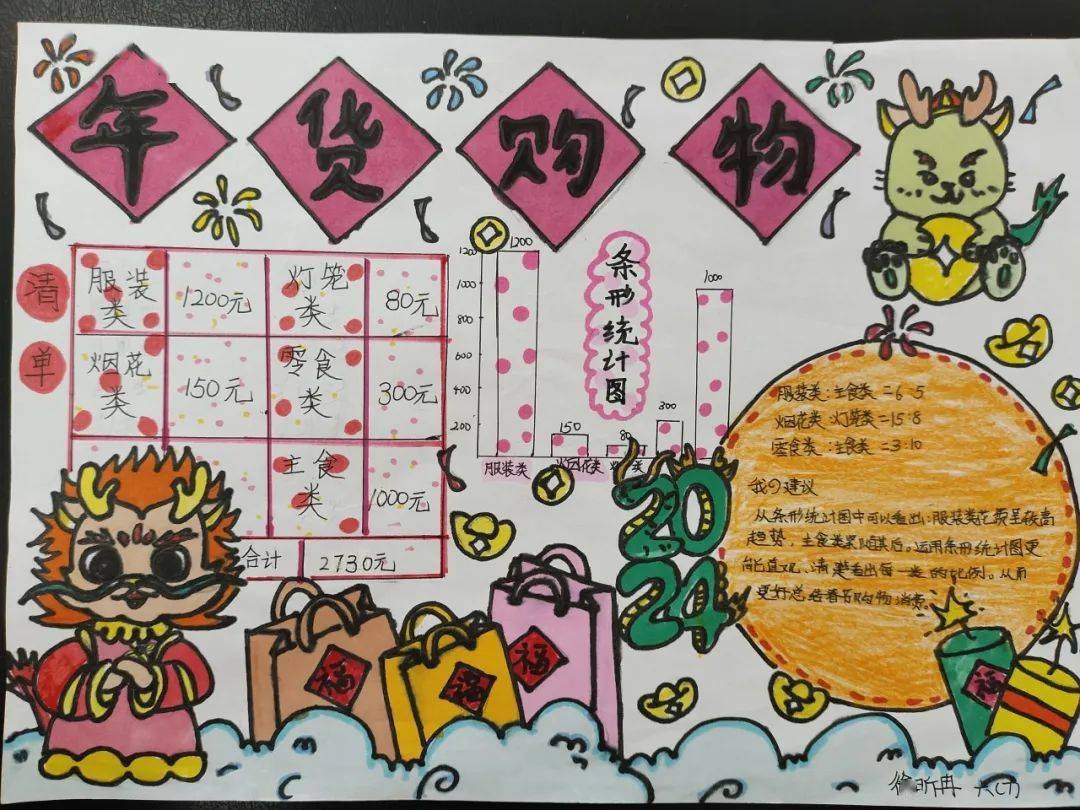 年货购物
清单
服装类 1200元 灯笼类 80元
烟花类 150元 零食类 300元
主食类 1000元
合计 2730元
条形统计图
1200
1000
800
600
400
200
1200
150
80
300
1000
服装类 烟花类
服装类:主食类=6:5
烟花类:灯笼类=15:8
零食类:主食类=3:10
我的建议
从条形统计图中可以看出:服装类花费呈较高
趋势,主食类紧随其后。运用条形统计图更
能直观、清楚看出每一类的比例。从而
更好总结春节购物消费。
2024
福
福
福
福